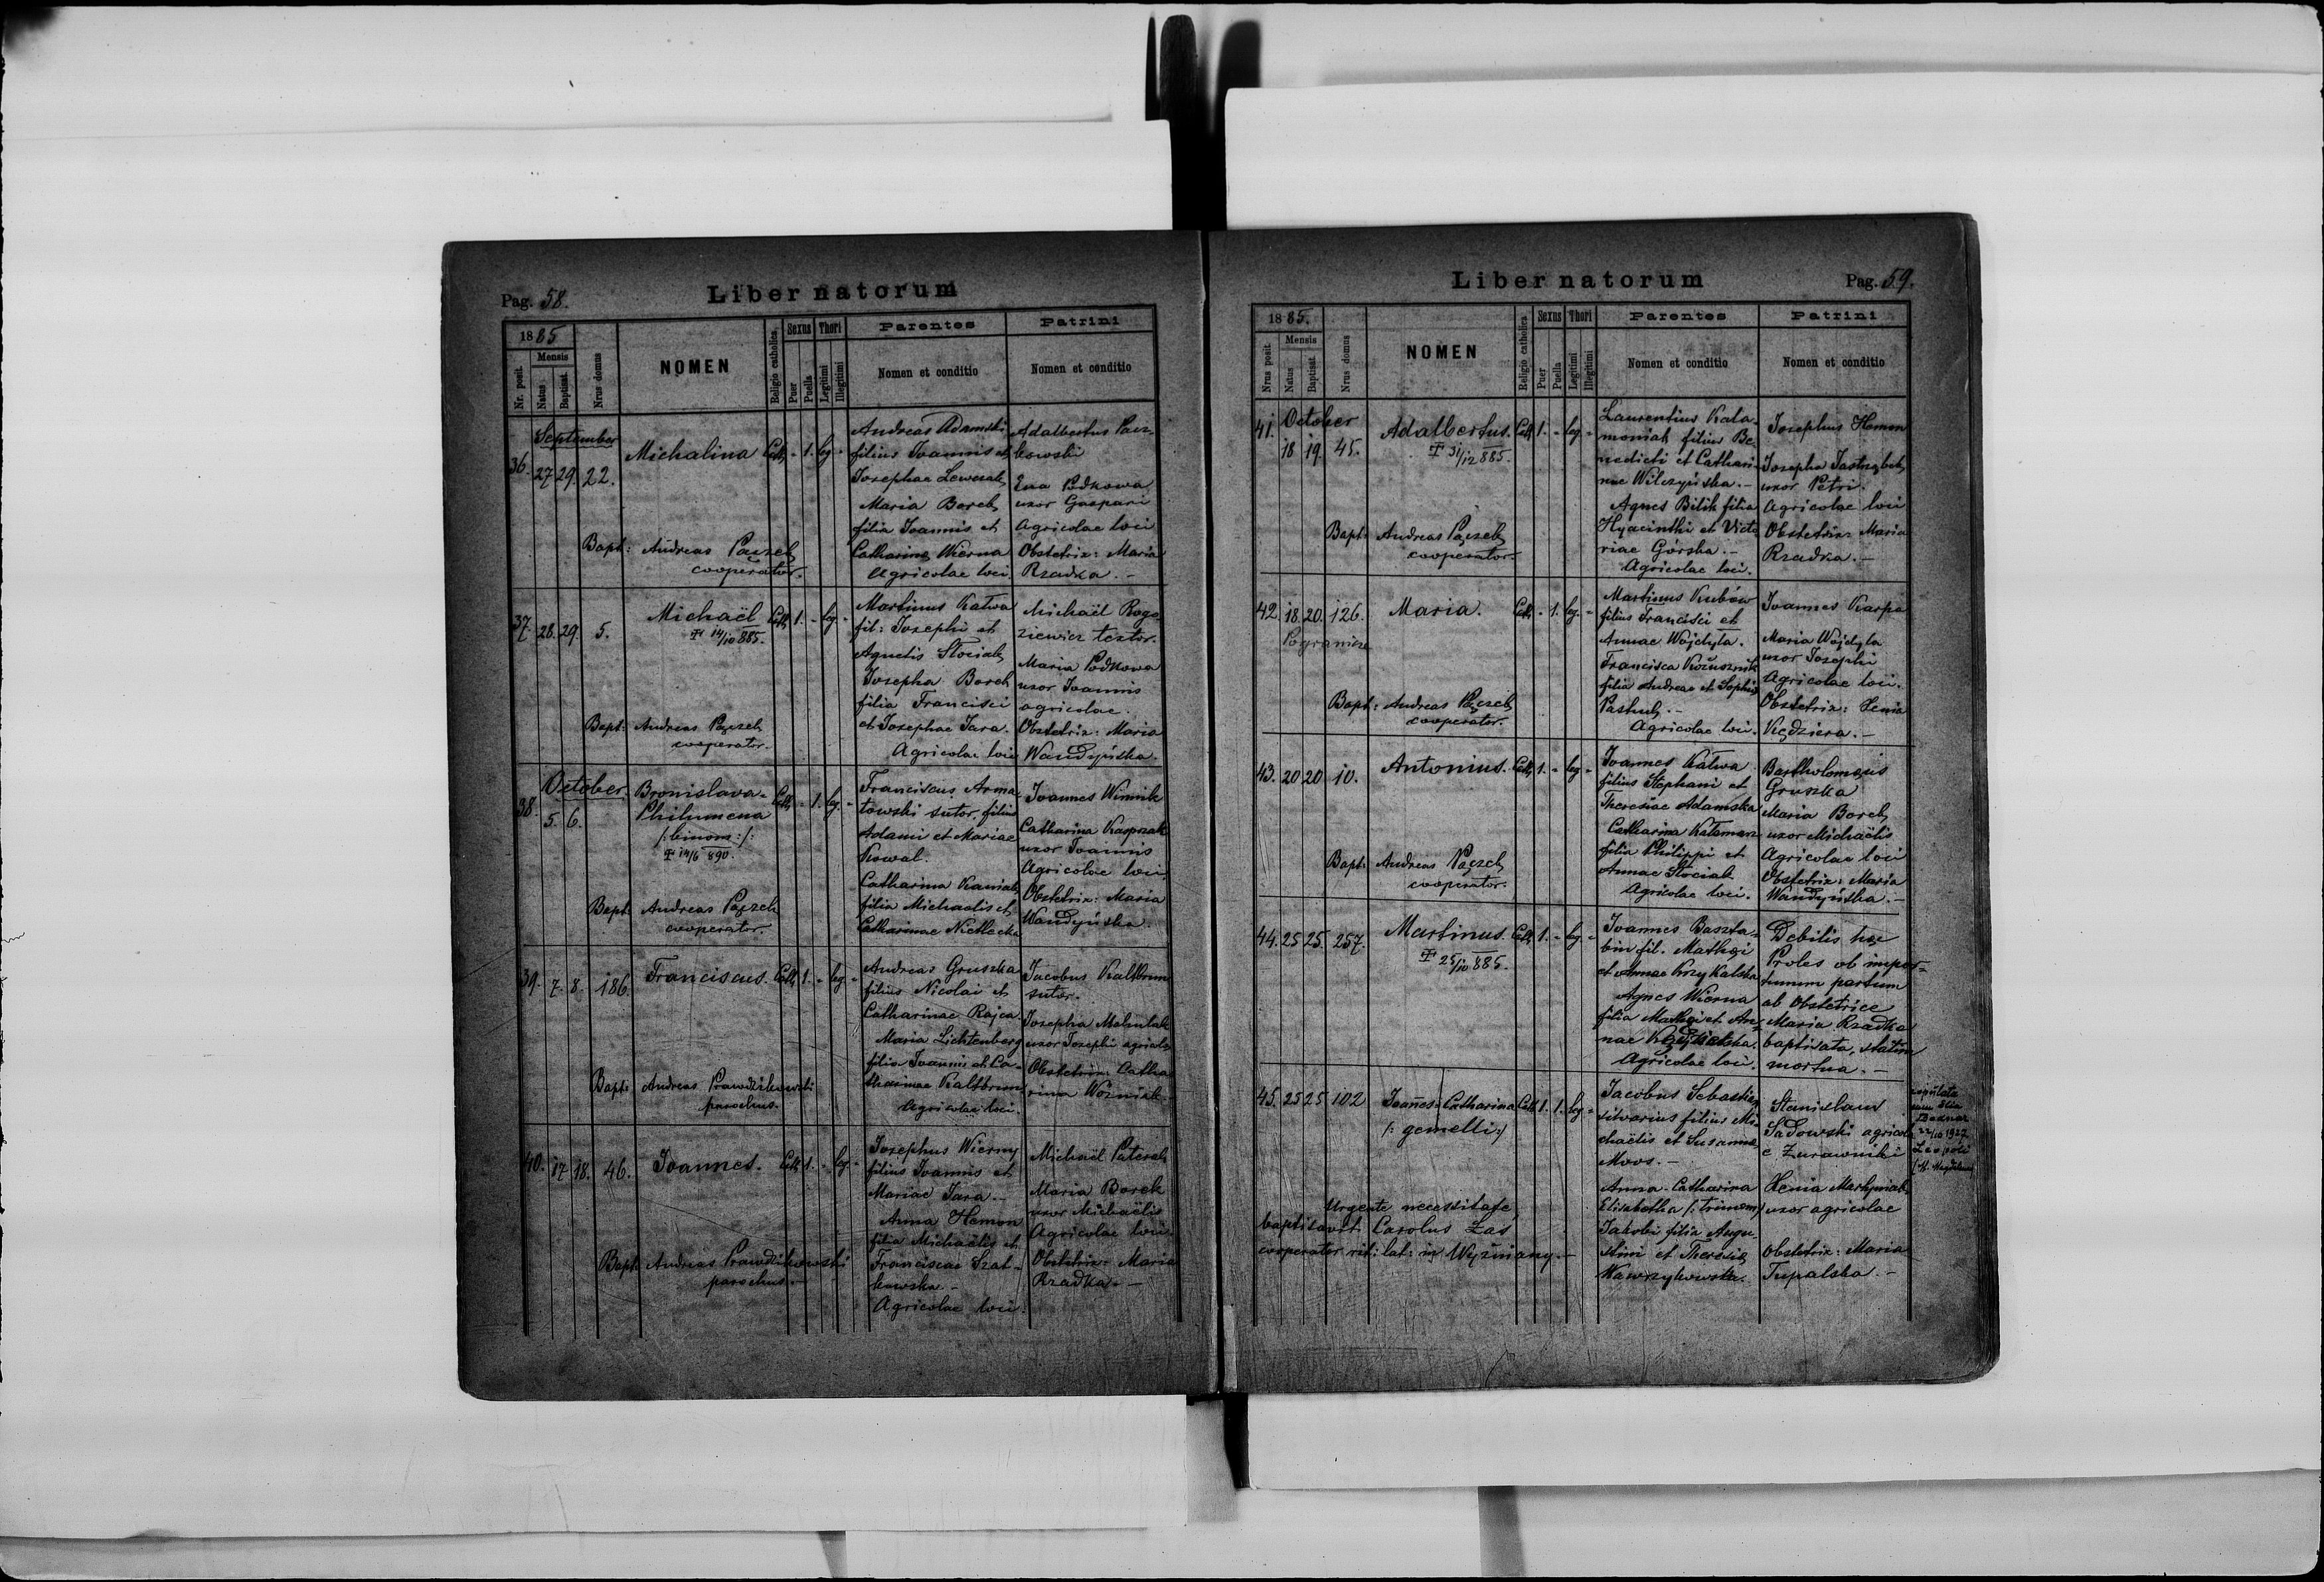 Pag. 58.
Liber natorum
1885
Nr. posit.
Mensis
Natus
Baptisat.
Nrus domus
NOMEN
Religio catholica
Sexus
Puer
Puella
Thori
Legitimi
Illegitimi
Parentes
Nomen et conditio
Patrini
Nomen et conditio
September
36. 27 29. 22. Michalina Cath - 1. leg -
Bapt: Andreas Pączek
cooperator.
Andreas Adamski
filius Joannis et
Josephae Lewczak
Maria Borek
filia Joannis et
Catharina Wierna
Agricolae loci.
Adalbertus Pacz-
kowski
Eva Podkowa
uxor Gaspari
Agricolae loci
Obstetrix: Maria
Rzadka. -
37. 28. 29. 5. Michaël Cath 1. - leg -
✝ 14/10 885.
Bapt: Andreas Pączek
cooperator.
Martinus Katwa
fil: Josephi et
Agnetis Stociak
Josepha Borek
filia Francisci
et Josephae Jara.
Agricolae loci
Michaël Rogo
ziewicz textor.
Maria Podkowa
uxor Joannis
agricolae.
Obstetrix: Maria
Wandyńska.
October.
38. 5. 6. Bronislava-
Philumena Cath - 1. leg. -
/: binom :/
✝ 14/6 890.
Bapt: Andreas Pączek
cooperator.
Franciscus Arma
towski sutor, filius
Adami et Mariae
Kowal.
Catharina Kaniak
filia Michaelis et
Catharinae Nietlecka
Joannes Winnik
Catharina Kasprzak
uxor Joannis
Agricolae loci
Obstetrix: Maria
Wandyńska.
39. 7. 8. 186. Franciscus. Cath 1. - leg. -
Bapt: Andreas Prawdzikowski
parochus.
Andreas Gruszka
filius Nicolai et
Catharinae Rajca
Maria Lichtenberg
filia Joannis et Ca-
tharinae Kaltbrun
Agricolae loci.
Jacobus Kaltbrun
sutor.
Josepha Malutak
uxor Josephi agricolae
Obstetrix: Catha
rina Woźniak.
40. 17 18. 46. Joannes. Cath 1. - leg. -
Bapt: Andreas Prawdzikowski
parochus. -
Josephus Wierny
filius Joannis et
Mariae Jara. -
Anna Hemon
filia Michaëlis et
Franciscae Szat-
kowska. -
Agricolae loci.
Michaël Paterak
Maria Borek
uxor Michaëlis
Agricolae loci
Obstetrix: Maria
Rzadka. -
Liber natorum
Pag. 59.
1885.
Nrus posit.
Mensis
Natus
Baptisat.
Nrus domus
NOMEN
Religio catholica
Sexus
Puer
Puella
Thori
Legitimi
Illegitimi
Parentes
Nomen et conditio
Patrini
Nomen et conditio
October
41. 18 19. 45. Adalbertus. Cath 1. - leg. -
✝ 31/12 885.
Bapt: Andreas Pączek
cooperator.
Laurentius Kata-
moniak filius Be-
nedicti et Cathari-
nae Wilczyńska. -
Agnes Bilik filia
Hyacinthi et Victo
riae Górska. -
Agricolae loci.
Josephus Hemon
Josepha Jastrzębek
uxor Petri.
Agricolae loci
Obstetrix Maria
Rzadka. -
42. 18. 20. 126. Maria. Cath - 1. leg. -
Pogranicze
Bapt: Andreas Pączek
cooperator.
Martinus Kubów
filius Francisci et
Annae Wojdyla.
Francisca Kożusznik
filia Andreae et Sophiae
Pastuch. -
Agricolae loci.
Joannes Karpa
Maria Wojdyla
uxor Josephi
Agricolae loci.
Obstetrix: Xenia
Kędziera. -
43. 20 20 10. Antonius. Cath 1. - leg -
Bapt: Andreas Pączek
cooperator.
Joannes Katwa
filius Stephani et
Theresiae Adamska
Catharina Katamarz
filia Philippi et
Annae Stociak
Agricolae loci.
Bartholomaeus
Gruszka
Maria Borek
uxor Michaëlis
Agricolae loci
Obstetrix: Maria
Wandyńska. -
44. 25 25. 257. Martinus. Cath 1. - leg. -
✝ 25/10 885.
Joannes Baszta-
bin fil. Mathaei
et Annae Krzykalska
Agnes Wierna
filia Mathaei et An-
nae
Agricolae loci.
Debilis haec
Proles ob impor-
tunum partum
ab Obstetrice
Maria Rzadka
baptisata, statim
mortua. -
45. 25 25 102 Joannes - Catharina Cath 1. 1. leg -
/: gemelli :/
Urgente necessitate,
baptisavit Carolus Żas
cooperator rit: lat: in Wyżniany. -
Jacobus Sebastian
silvarius filius Mi
chaëlis et Susannae
Moos. -
Anna-Catharina
Elisabetha /: trinom:/
Jakobi filia Augu
stini et Theresiae
Wawrzykowska.
Stanislaus
Sadowski agricola
e Żurawniki
Xenia Martyniak
uxor agricolae
Obstetrix: Maria
Tupalska. -
copulata
cum Elia
Bednarz
22/10 1927
Leopoli
(M. Magdalena)